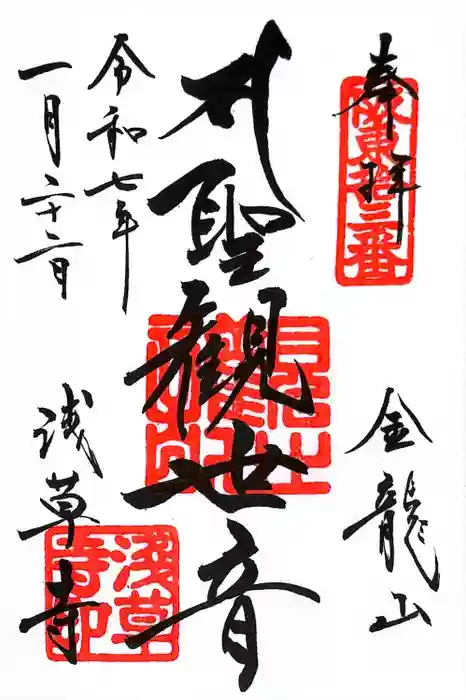 奉拝
坂東拾三番
金龍山
聖観世音
令和七年
一月二十二日
浅草寺
浅草
寺印